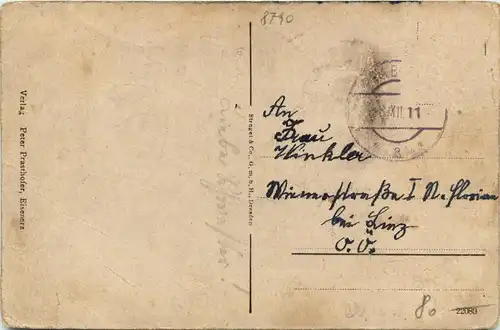 8790
Verlag Peter Prasthofer, Eisenerz
Stengel & Co., G. m. b. H., Dresden
XII 11
An
Frau
Winkler
Wienerstraße I St. Florian
bei Linz
O. Ö.
80
22080